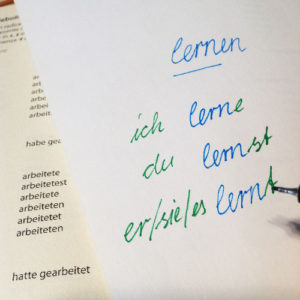 arbe
arbe
arbe
arbe
arbeit
habe gear
arbeitete
arbeitetest
arbeitete
arbeiteten
arbeitetet
arbeiteten
hatte gearbeitet
lernen
ich lerne
du lernst
er/sie/es lernt